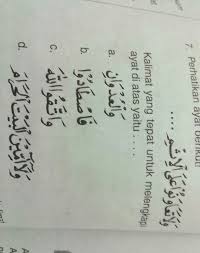 7. Perhatikan ayat berikut!
وَلَا تَعَاوَنُوْا عَلَى الْاِثْمِ ....
Kalimat yang tepat untuk melengkapi
ayat di atas yaitu ....
a. وَالْعُدْوَانِ
b. فَاصْطَادُوْا
c. وَاتَّقُوا اللّٰهَ
d. وَلَآ اٰمِّيْنَ الْبَيْتَ الْحَرَامَ